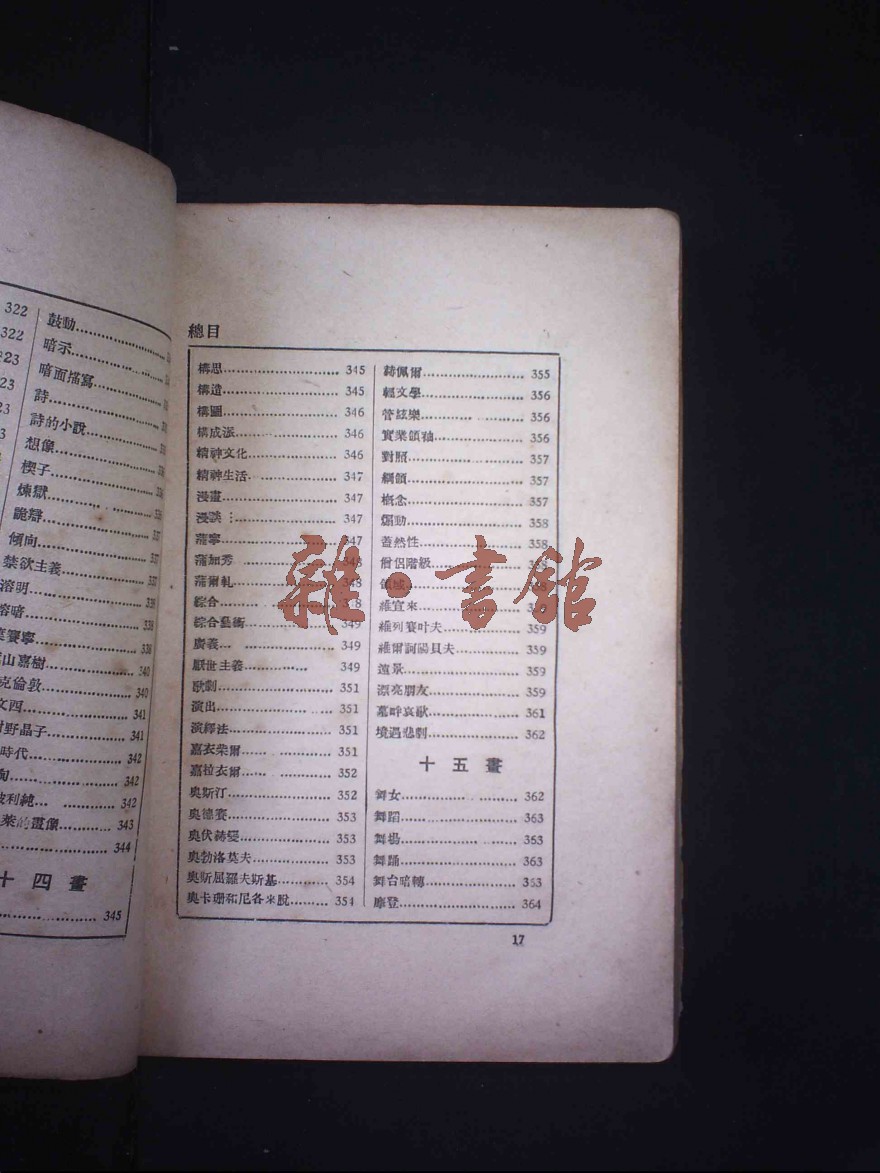 322
322
323
323
鼓動
暗示
暗面描寫
詩
詩的小說
想像
楔子
煉獄
詭辯
傾向 337
禁欲主義 337
溶明 339
溶暗 339
賽寧 338
山嘉樹 340
克倫敦 340
文西 341
野晶子 341
時代 342
342
波利純 342
萊的畫像 343
344
十四畫
345
總目
構思 345
構造 345
構圖 346
構成派 346
精神文化 346
精神生活 347
漫畫 347
漫談 347
蒲寧 347
蒲加秀 348
蒲爾軋 348
綜合 348
綜合藝術 349
廣義 349
厭世主義 349
歌劇 351
演出 351
演繹法 351
嘉衣柴爾 351
嘉拉衣爾 352
奧斯汀 352
奧德賽 353
奧伏赫變 353
奧勃洛莫夫 353
奧斯屈羅夫斯基 354
奧卡珊和尼各米脫 354
赫佩爾 355
輕文學 356
管絃樂 356
實業領袖 356
對照 357
綱領 357
概念 357
煽動 358
蓋然性 358
僧侶階級 358
領域 358
維宣來 359
維列賽叶夫 359
維爾訶陽貝夫 359
遠景 359
漂亮朋友 359
墓畔哀歌 361
境遇悲劇 362
十五畫
舞女 362
舞蹈 363
舞場 363
舞踊 363
舞台暗轉 363
摩登 364
17
雜·書館